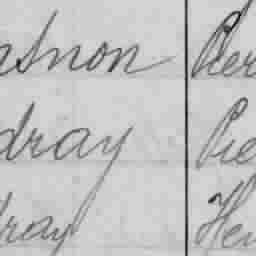 snon Pier
dray Pie
ray Hen